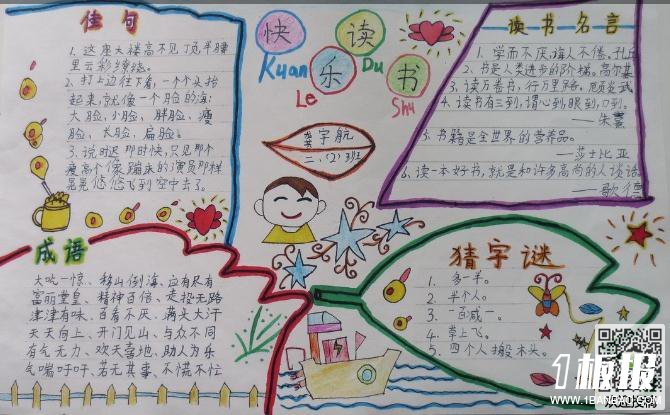 佳句
1. 这座大楼高不见顶,半腰
里云彩缭绕。
2. 打上边往下看,一个个头抬
起来,就像一个脸的海:
大脸,小脸、胖脸、瘦
脸、长脸、扁脸。
3. 说时迟那时快,只见那个
瘦高个像蹦床的演员那样
晃晃悠悠飞到空中去了。
快
读
Kuan
Du
乐
书
Le
Shu
宇航
二、(2)班
读书名言
1. 学而不厌,诲人不倦。孔丘
2. 书是人类进步的阶梯。高尔基
3. 读万卷书,行万里路。顾炎武
4. 读书有三到,谓心到,眼到,口到。
——朱熹
5. 书籍是全世界的营养品。
——莎士比亚
6. 读一本好书,就是和许多高尚的人谈话。
——歌德
成语
大吃一惊、移山倒海、应有尽有
富丽堂皇、精神百倍、走投无路
津津有味、百看不厌、满头大汗
天天向上、开门见山、与众不同
有气无力、欢天喜地、助人为乐
气喘吁吁、若无其事、不慌不忙
猜字谜
1. 多一半。
2. 半个人。
3. 一百减一。
4. 掌上飞。
5. 四个人搬木头。
1板报
WWW.1BANBAO.COM